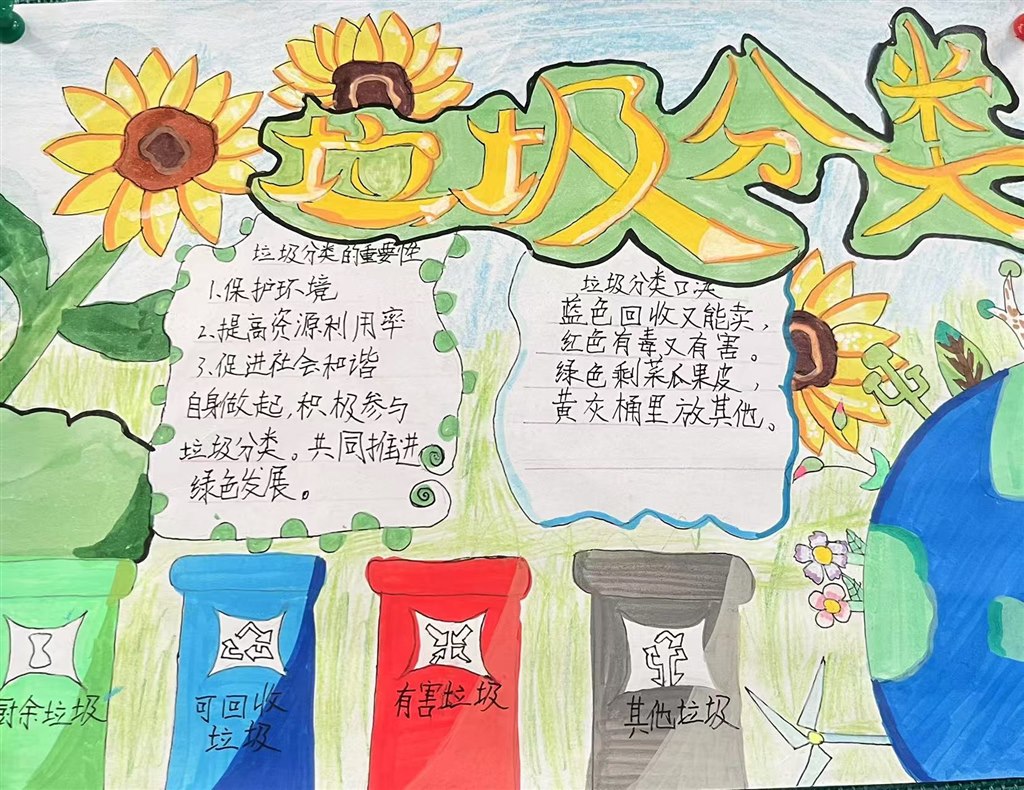 垃圾分类
垃圾分类的重要性
1.保护环境
2.提高资源利用率
3.促进社会和谐
自身做起,积极参与
垃圾分类。共同推进
绿色发展。
垃圾分类口诀
蓝色回收又能卖，
红色有毒又有害。
绿色剩菜瓜果皮，
黄灰桶里放其他。
厨余垃圾
可回收
垃圾
有害垃圾
其他垃圾